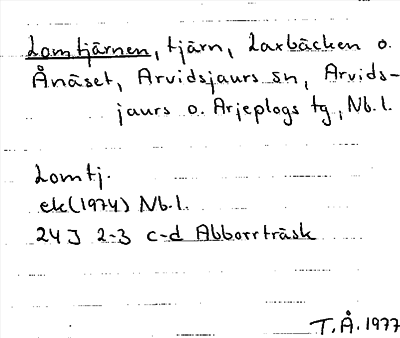 Lomtjärnen, tjärn, Laxbäcken o.
Ånäset, Arvidsjaurs sn, Arvids-
jaurs o. Arjeplogs tg, Nb.l.
Lomtj.
ek(1974) Nb.l.
24J 2-3 c-d Abborrträsk
T.Å.1977